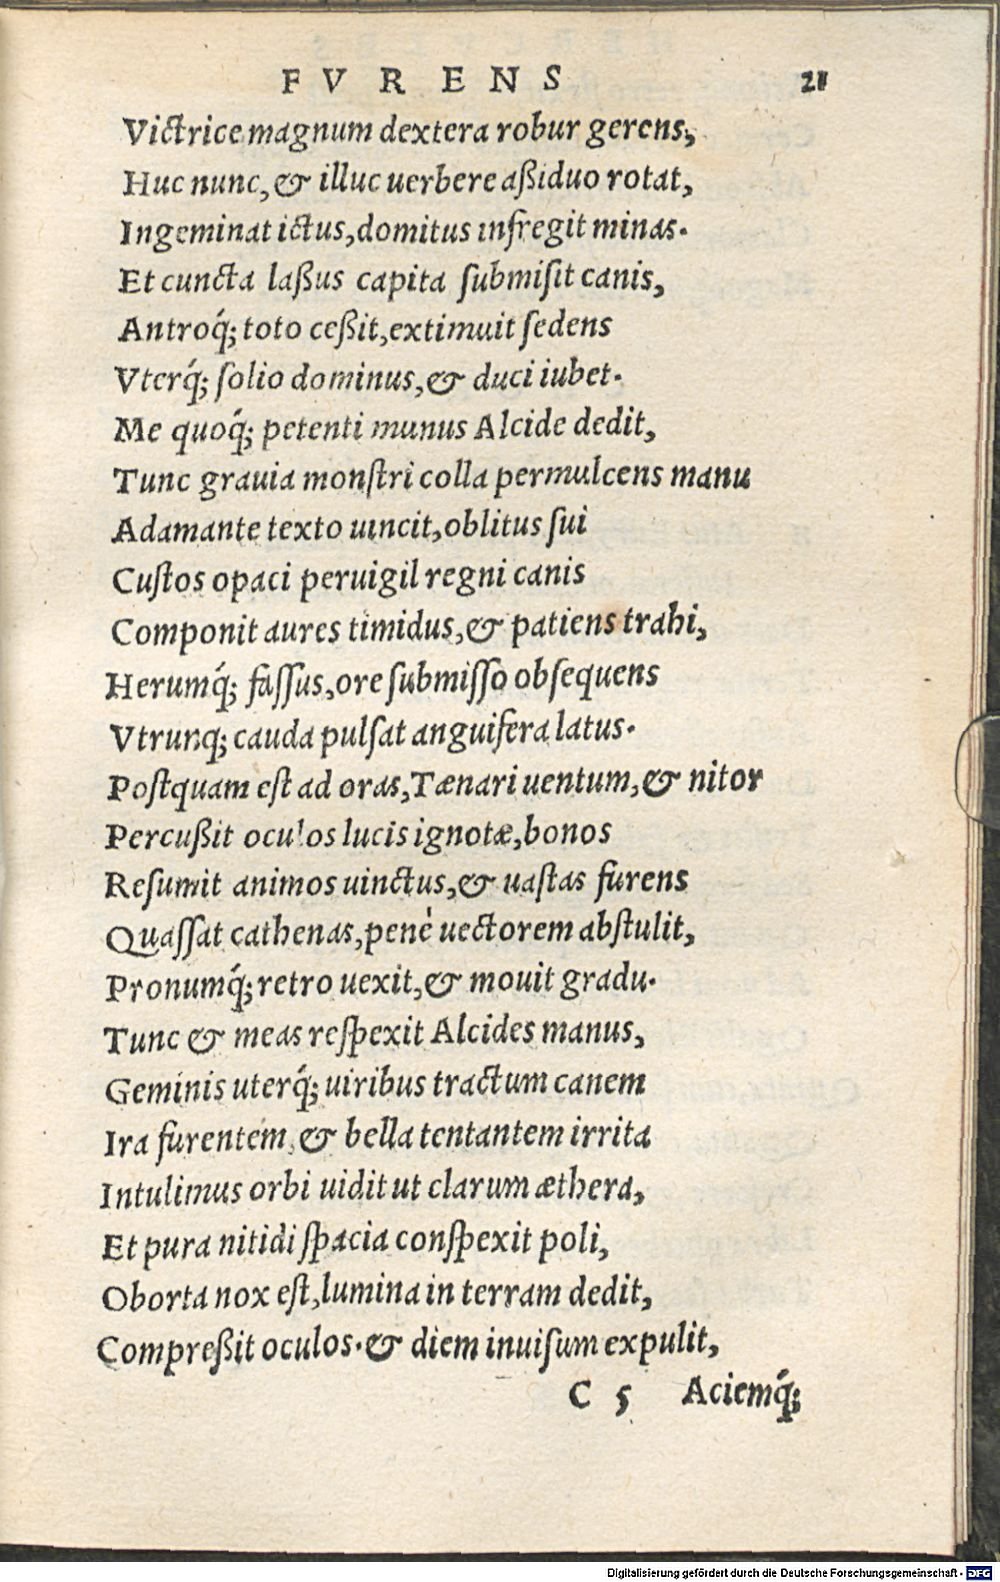 FVRENS 21
Victrice magnum dextera robur gerens,
Huc nunc, & illuc uerbere aßiduo rotat,
Ingeminat ictus, domitus infregit minas.
Et cuncta laßus capita ſubmiſit canis,
Antroq́; toto ceßit, extimuit ſedens
Vterq́; ſolio dominus, & duci iubet.
Me quoq́; petenti munus Alcide dedit,
Tunc grauia monſtri colla permulcens manu
Adamante texto uincit, oblitus ſui
Cuſtos opaci peruigil regni canis
Componit aures timidus, & patiens trahi,
Herumq́; faſſus, ore ſubmiſſo obſequens
Vtrunq; cauda pulſat anguifera latus.
Poſtquam eſt ad oras, Tænari uentum, & nitor
Percußit oculos lucis ignotæ, bonos
Reſumit animos uinctus, & uaſtas furens
Quaſſat cathenas, penè uectorem abſtulit,
Pronumq́; retro uexit, & mouit gradu.
Tunc & meas reſpexit Alcides manus,
Geminis uterq́; uiribus tractum canem
Ira furentem, & bella tentantem irrita
Intulimus orbi uidit ut clarum æthera,
Et pura nitidi ſpacia conſpexit poli,
Oborta nox eſt, lumina in terram dedit,
Compreßit oculos. & diem inuiſum expulit,
C 5 Aciemq́;
Digitalisierung gefördert durch die Deutsche Forschungsgemeinschaft - DFG